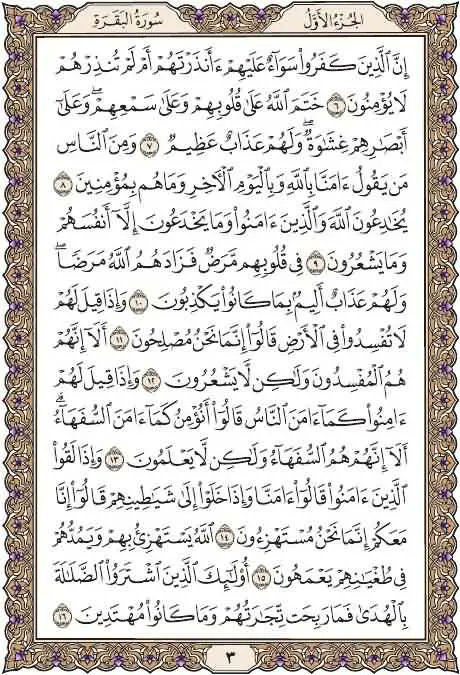 سُورَةُ البَقَرَةِ الجُزْءُ الأَوَّلُ
إِنَّ ٱلَّذِينَ كَفَرُواْ سَوَآءٌ عَلَيْهِمْ ءَأَنذَرْتَهُمْ أَمْ لَمْ تُنذِرْهُمْ
لَا يُؤْمِنُونَ ٦ خَتَمَ ٱللَّهُ عَلَىٰ قُلُوبِهِمْ وَعَلَىٰ سَمْعِهِمْۖ وَعَلَىٰٓ
أَبْصَٰرِهِمْ غِشَٰوَةٌۖ وَلَهُمْ عَذَابٌ عَظِيمٌ ٧ وَمِنَ ٱلنَّاسِ
مَن يَقُولُ ءَامَنَّا بِٱللَّهِ وَبِٱلْيَوْمِ ٱلْأَخِرِ وَمَا هُم بِمُؤْمِنِينَ ٨
يُخَٰدِعُونَ ٱللَّهَ وَٱلَّذِينَ ءَامَنُواْ وَمَا يَخْدَعُونَ إِلَّآ أَنفُسَهُمْ
وَمَا يَشْعُرُونَ ٩ فِى قُلُوبِهِم مَّرَضٌ فَزَادَهُمُ ٱللَّهُ مَرَضًاۖ
وَلَهُمْ عَذَابٌ أَلِيمٌۢ بِمَا كَانُواْ يَكْذِبُونَ ١٠ وَإِذَا قِيلَ لَهُمْ
لَا تُفْسِدُواْ فِى ٱلْأَرْضِ قَالُوٓاْ إِنَّمَا نَحْنُ مُصْلِحُونَ ١١ أَلَآ إِنَّهُمْ
هُمُ ٱلْمُفْسِدُونَ وَلَٰكِن لَّا يَشْعُرُونَ ١٢ وَإِذَا قِيلَ لَهُمْ
ءَامِنُواْ كَمَآ ءَامَنَ ٱلنَّاسُ قَالُوٓاْ أَنُؤْمِنُ كَمَآ ءَامَنَ ٱلسُّفَهَآءُۗ
أَلَآ إِنَّهُمْ هُمُ ٱلسُّفَهَآءُ وَلَٰكِن لَّا يَعْلَمُونَ ١٣ وَإِذَا لَقُواْ
ٱلَّذِينَ ءَامَنُواْ قَالُوٓاْ ءَامَنَّا وَإِذَا خَلَوْاْ إِلَىٰ شَيَٰطِينِهِمْ قَالُوٓاْ إِنَّا
مَعَكُمْ إِنَّمَا نَحْنُ مُسْتَهْزِءُونَ ١٤ ٱللَّهُ يَسْتَهْزِئُ بِهِمْ وَيَمُدُّهُمْ
فِى طُغْيَٰنِهِمْ يَعْمَهُونَ ١٥ أُوْلَٰٓئِكَ ٱلَّذِينَ ٱشْتَرَوُاْ ٱلضَّلَٰلَةَ
بِٱلْهُدَىٰ فَمَا رَبِحَت تِّجَٰرَتُهُمْ وَمَا كَانُواْ مُهْتَدِينَ ١٦
٣